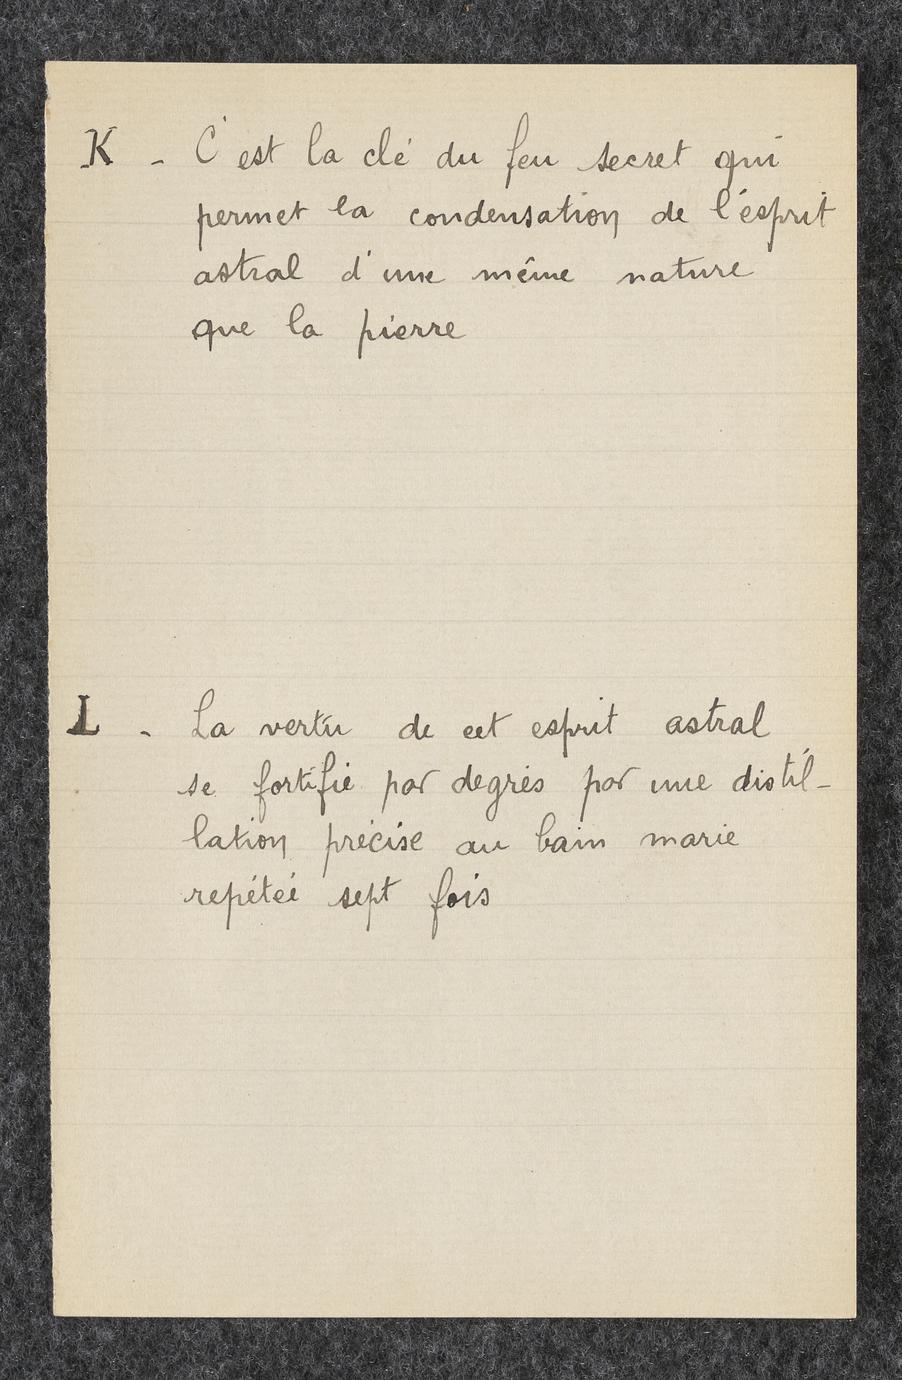 K - C'est la clé du feu secret qui
permet la condensation de l'esprit
astral d'une même nature
que la pierre
L - La vertu de cet esprit astral
se fortifie par degrés par une distil-
lation précise au bain marie
repétée sept fois